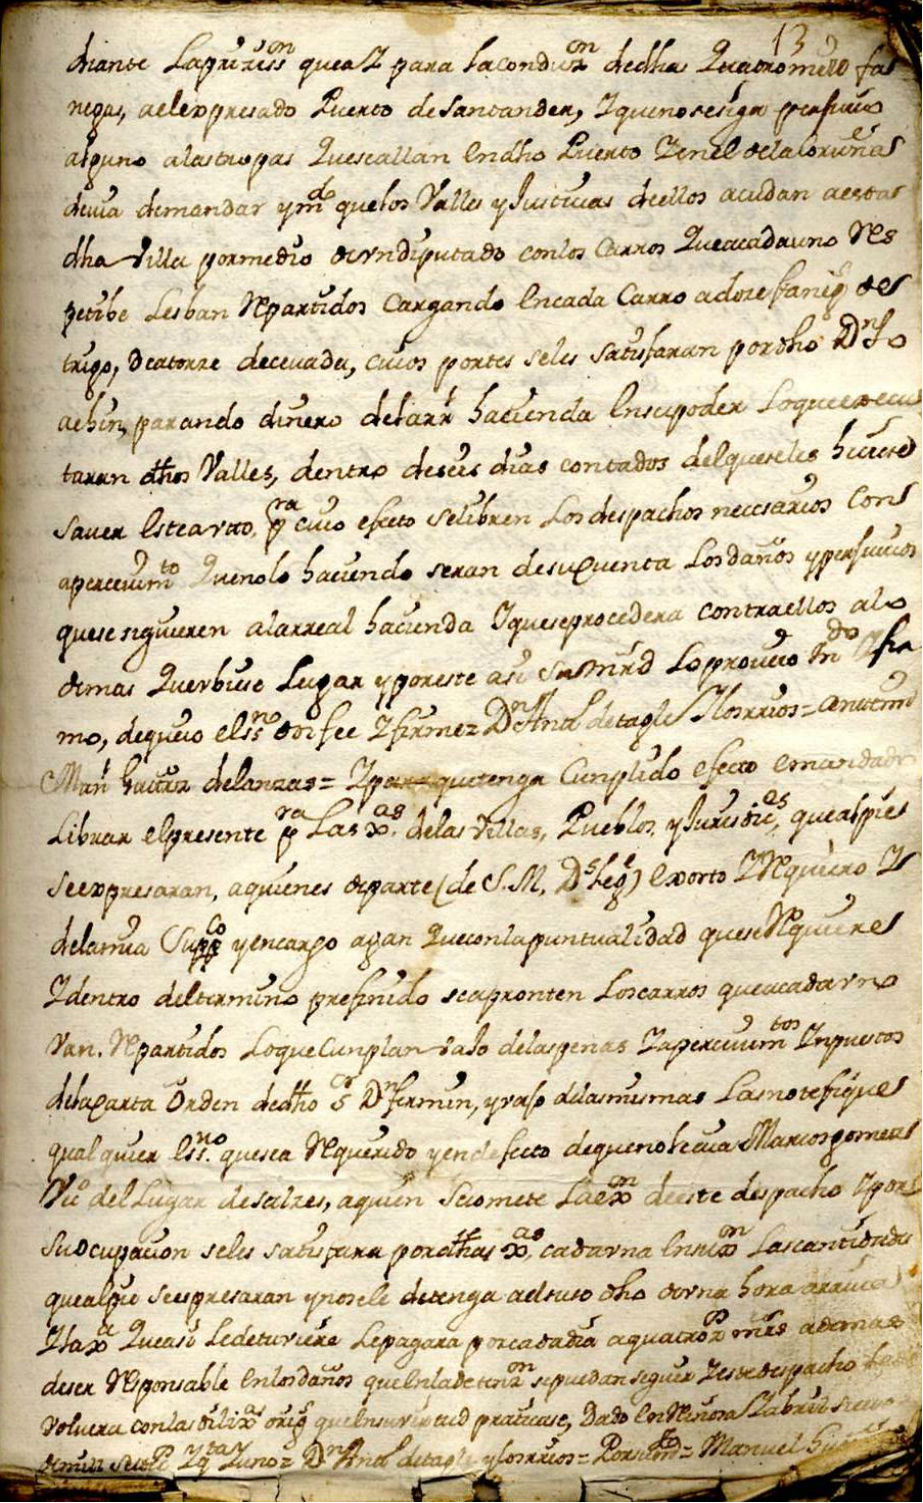 13
diante la precission que ai para la conduzn de dhas quatro mill fa
negas, a el expresado Puerto de Santander, y que no se siga perjuicio
alguno a las tropas que se allan en dho Puerto y en el de la Coruña
devia de mandar y mdo que los Valles y Justicias de ellos acudan a esta
dha Villa por medio de vn diputado con los Carros que a cada uno Res
petibe les ban Repartidos Cargando en cada Carro a doze faneg de
trigo, o catorze de cevada, cuios portes se les satisfaran por dho Dn
parando dinero de la rr hacienda en su poder lo que execu
taran dhos Valles, dentro de seis dias contados del que se les hiciere
saver este avtto, pra cuio efecto se libren los despachos necesarios con
apercevimto que no lo haciendo seran de su quenta los daños y perjuicios
que se siguieren a la rreal hacienda y que se procedera contra ellos a lo
demas que vbiese lugar y por este asi su mrd lo proveio mdo y fir
mo, de que io el ssno doi fee y firme = Dn Antl de tagle y los rrios = ante mi
Manl de lanzas = y para que tenga Cunplido efecto e mandado
librar el presente pra las xas de las Villas, Pueblos, y Jurisdices, que al pie
se expresaran, a quienes de parte (de S.M. Ds legue) exorto y Requiero y
de la mia suppco y encargo agan que con la puntualidad que se Requiere
y dentro del termino prefinido se apronten los carros que a cada vno
van Repartidos lo que cunplan vajo de las penas y apercevimtos ynpuestos
de la carta orden de dho sor Dn fermin, y vajo de las mismas la notefique
qualquier essno que sea Requerido y en defecto de que no lo aia Marcos gomez
Vzo del Lugar de salzes, a quien se comete la exon de este despacho y por
su ocupacion se les satisfara por dhas xas, cada vna en su xon las cantidades
que al pie se espresaran y no se le detenga de dho de vna hora arriva
y la xa que asi le detuviere le pagara por cada dia a quatroz mrs a demas
de ser Responsable en los daños que en la detenzn se puedan seguir y este despacho
volvera con las dilixas orig que en su virtud praticase, Dado en Reinosa y Abril
de mill setezs y tay y uno = Dn Antl de tagle y los rrios = Por su mdo = Manuel